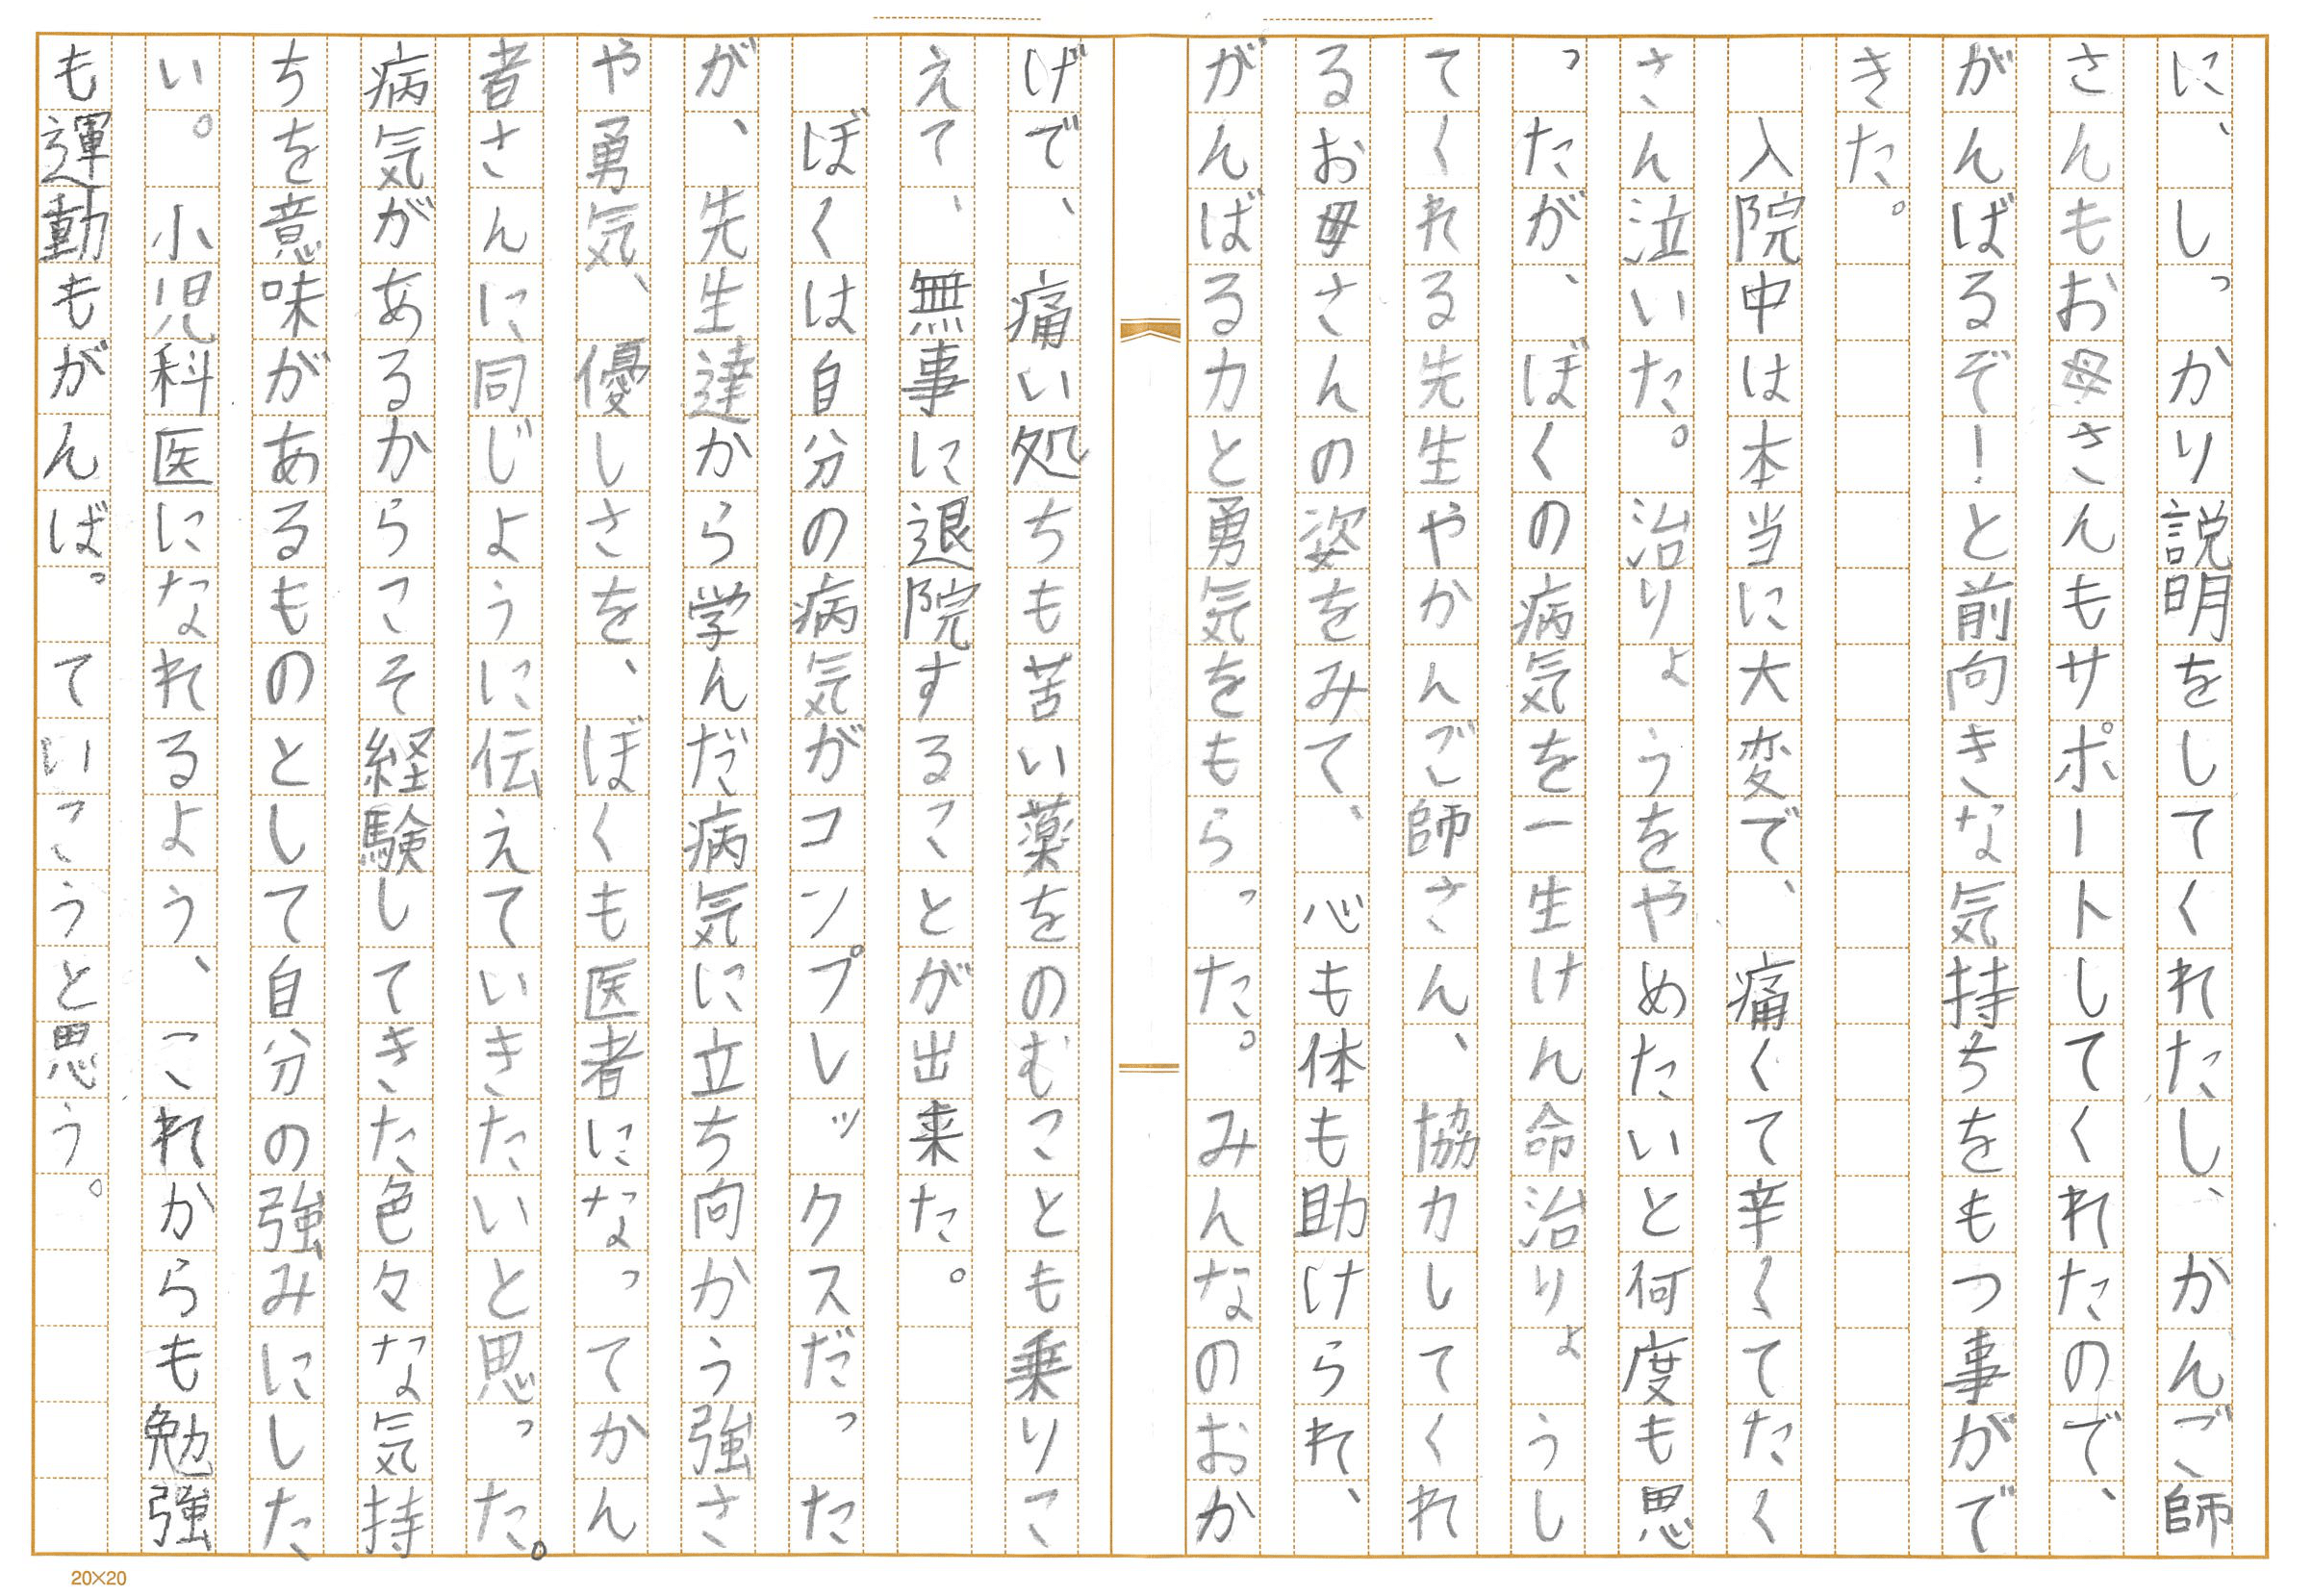 に、しっかり説明をしてくれたし、かんご師
さんもお母さんもサポートしてくれたので、
がんばるぞ!と前向きな気持ちをもつ事がで
きた。
入院中は本当に大変で、痛くて辛くてたく
さん泣いた。治りょうをやめたいと何度も思
ったが、ぼくの病気を一生けん命治りょうし
てくれる先生やかんご師さん、協力してくれ
るお母さんの姿をみて、心も体も助けられ、
がんばる力と勇気をもらった。みんなのおか
げで、痛い処ちも苦い薬をのむことも乗りこ
えて、無事に退院することが出来た。
ぼくは自分の病気がコンプレックスだった
が、先生達から学んだ病気に立ち向かう強さ
や勇気、優しさを、ぼくも医者になってかん
者さんに同じように伝えていきたいと思った。
病気があるからこそ経験してきた色々な気持
ちを意味があるものとして自分の強みにした
い。小児科医になれるよう、これからも勉強
も運動もがんばっていこうと思う。
20×20